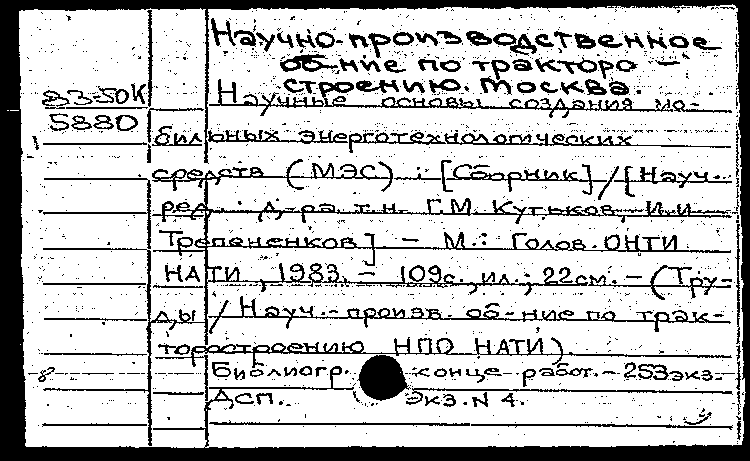 Научно-производственное
об-ние по тракторо-
строению. Москва.
83-50К
Научные основы создания мо-
5880
бильных энерготехнологических
средств (МЭС) : [Сборник] / [Науч.
ред. : д-ра т.н. Г.М. Кутьков, И.И.
Трепененков] - М.: Голов. ОНТИ
НАТИ, 1983. - 109с., ил.; 22см. - (Тру-
ды / Науч.-произв. об-ние по трак-
торостроению НПО НАТИ).
Библиогр. конце работ. - 253экз.
8
Дсп. Экз. N 4.